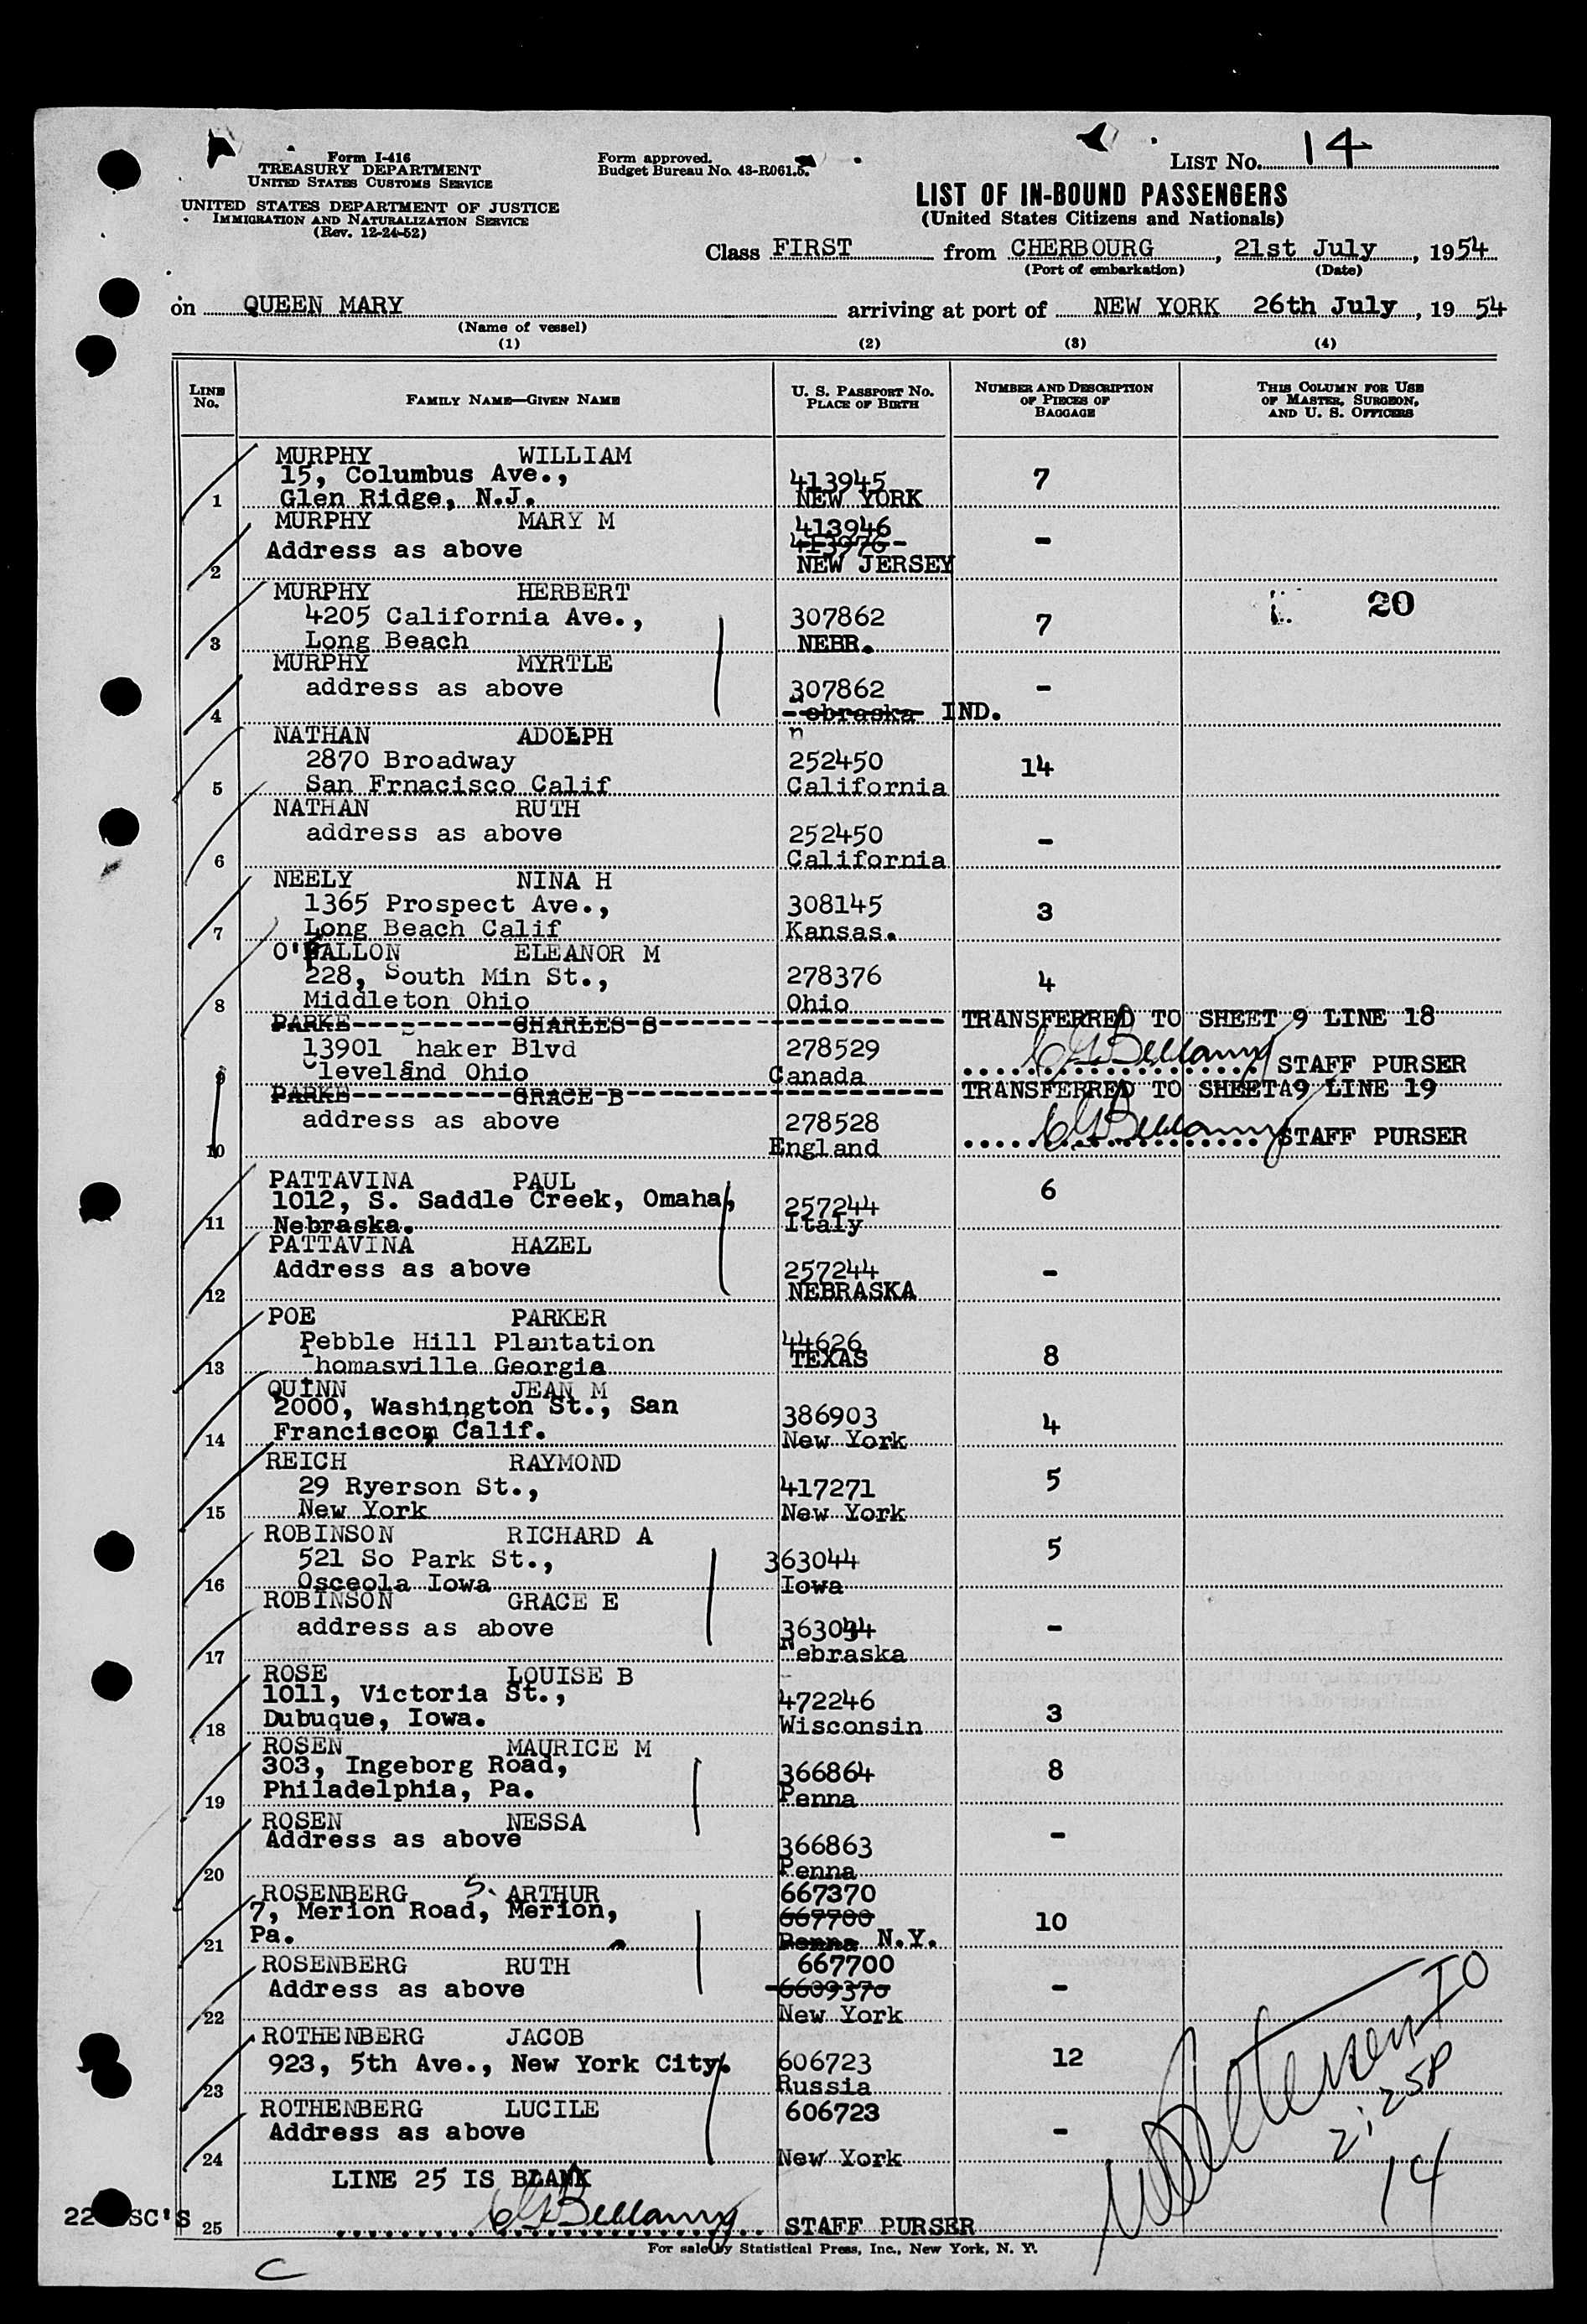 Form I-416
TREASURY DEPARTMENT
UNITED STATES CUSTOMS SERVICE
UNITED STATES DEPARTMENT OF JUSTICE
IMMIGRATION AND NATURALIZATION SERVICE
(Rev. 12-24-52)
Form approved.
Budget Bureau No. 43-R061.5.
LIST No. 14
LIST OF IN-BOUND PASSENGERS
(United States Citizens and Nationals)
Class FIRST from CHERBOURG, 21st July, 1954
(Port of embarkation) (Date)
on QUEEN MARY arriving at port of NEW YORK 26th July, 1954
(Name of vessel)
(1) (2) (3) (4)
LINE No. FAMILY NAME—GIVEN NAME U. S. PASSPORT No. PLACE OF BIRTH NUMBER AND DESCRIPTION OF PIECES OF BAGGAGE THIS COLUMN FOR USE OF MASTER, SURGEON, AND U. S. OFFICERS
MURPHY WILLIAM
15, Columbus Ave., 413945 7
1 Glen Ridge, N.J. NEW YORK
MURPHY MARY M 413946
Address as above 413976 -
2 NEW JERSEY
MURPHY HERBERT 20
4205 California Ave., 307862 7
3 Long Beach NEBR.
MURPHY MYRTLE
address as above 307862 -
4 ebraska IND.
NATHAN ADOLPH n
2870 Broadway 252450 14
5 San Frnacisco Calif California
NATHAN RUTH
address as above 252450 -
6 California
NEELY NINA H
1365 Prospect Ave., 308145 3
7 Long Beach Calif Kansas.
O'FALLON ELEANOR M
228, South Min St., 278376 4
8 Middleton Ohio Ohio
PARKE CHARLES S TRANSFERRED TO SHEET 9 LINE 18
13901 Shaker Blvd 278529
9 Cleveland Ohio Canada Bellamy STAFF PURSER
PARKE GRACE B TRANSFERRED TO SHEETA9 LINE 19
address as above 278528
10 England Bellamy STAFF PURSER
PATTAVINA PAUL 6
1012, S. Saddle Creek, Omaha, 257244
11 Nebraska. Italy
PATTAVINA HAZEL
Address as above 257244 -
12 NEBRASKA
POE PARKER
Pebble Hill Plantation 44626
13 Thomasville Georgia TEXAS 8
QUINN JEAN M
2000, Washington St., San 386903 4
14 Franciscom, Calif. New York
REICH RAYMOND
29 Ryerson St., 417271 5
15 New York New York
ROBINSON RICHARD A
521 So Park St., 363044 5
16 Osceola Iowa Iowa
ROBINSON GRACE E
address as above 363044 -
17 Nebraska
ROSE LOUISE B
1011, Victoria St., 472246
18 Dubuque, Iowa. Wisconsin 3
ROSEN MAURICE M
303, Ingeborg Road, 366864 8
19 Philadelphia, Pa. Penna
ROSEN NESSA
Address as above 366863 -
20 Penna
ROSENBERG S. ARTHUR 667370
7, Merion Road, Merion, 667700 10
21 Pa. Penna N.Y.
ROSENBERG RUTH 667700
Address as above 6609370 -
22 New York
ROTHENBERG JACOB
923, 5th Ave., New York City. 606723 12
23 Russia
ROTHENBERG LUCILE 606723
Address as above -
24 New York
LINE 25 IS BLANK
22 SC'S 25 Bellamy STAFF PURSER
14
For sale by Statistical Press, Inc., New York, N. Y.
C